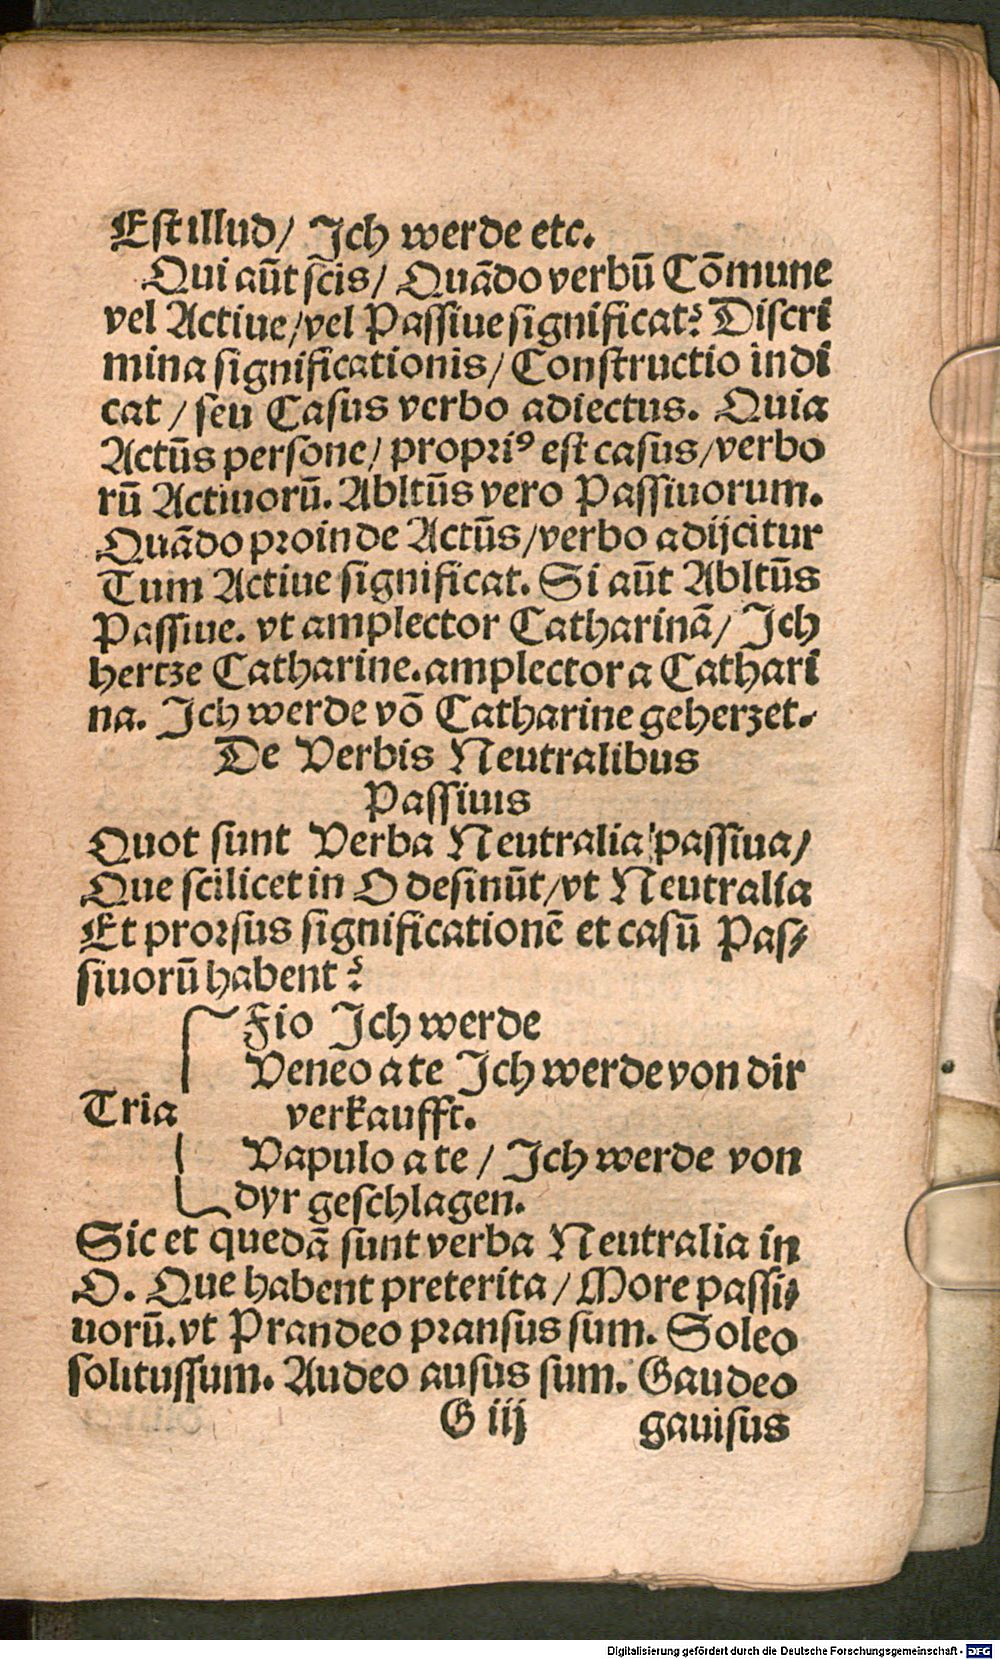 Est illud/ Ich werde etc.
Qui aūt scis/ Quādo verbū Cōmune
vel Actiue/vel Passiue significat? Discri
mina significationis/ Constructio indi
cat / seu Casus verbo adiectus. Quia
Actūs persone/ propriꝰ est casus/verbo
rū Actiuorū. Abltūs vero Passiuorum.
Quādo proinde Actūs/verbo adijcitur
Tum Actiue significat. Si aūt Abltūs
Passiue. vt amplector Catharinā/ Ich
hertze Catharine. amplector a Cathari
na. Ich werde vō Catharine geherzet.
De Verbis Neutralibus
Passiuis
Quot sunt Verba Neutralia passiua/
Que scilicet in O desinūt/vt Neutralia
Et prorsus significationē et casū Pas⸗
siuorū habent?
Fio Ich werde
Veneo a te Ich werde von dir
Tria verkaufft.
Vapulo a te / Ich werde von
dyr geschlagen.
Sic et quedā sunt verba Neutralia in
O. Que habent preterita / More passi⸗
uorū. vt Prandeo pransus sum. Soleo
solitussum. Audeo ausus sum. Gaudeo
G iij gauisus
Digitalisierung gefördert durch die Deutsche Forschungsgemeinschaft - DFG